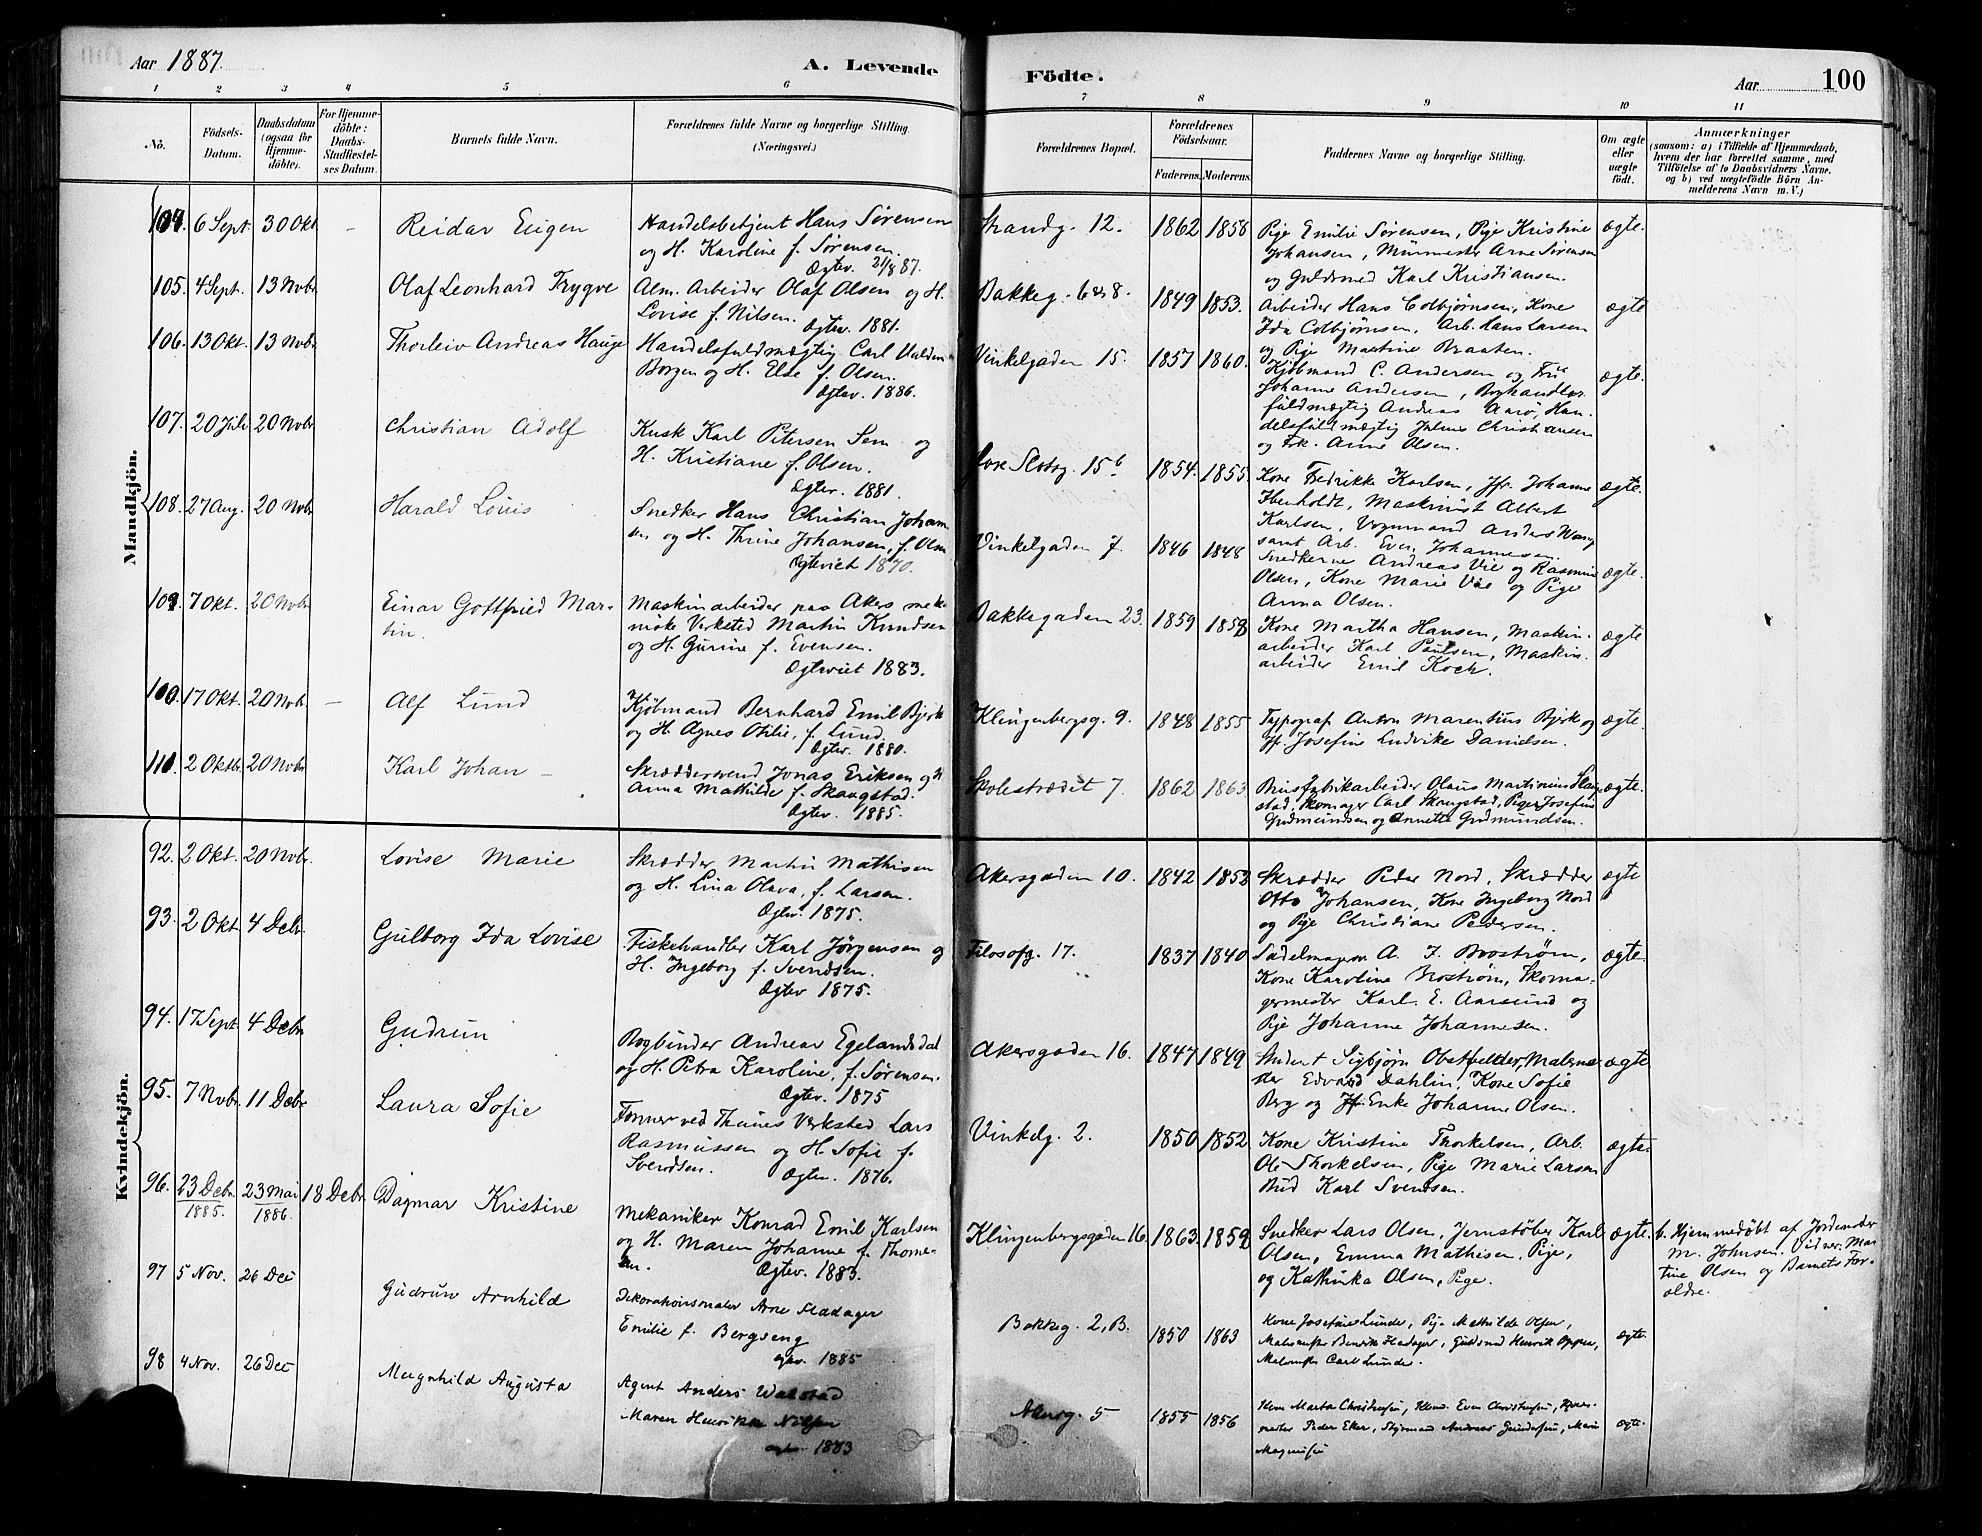 Aar 1887.
A. Levende
Födte.
Aar
100
1 2 3 4 5 6 7 8 9 10 11
No.
Födsels-
Datum.
Daabsdatum
(ogsaa for
Hjemme-
döbte).
For Hjemme-
döbte:
Daabs-
Stadfæstel-
ses Datum.
Barnets fulde Navn.
Forældrenes fulde Navne og borgerlige Stilling.
(Næringsvei.)
Forældrenes Bopæl.
Forældrenes
Födselsaar.
Faderens. Moderens.
Faddernes Navne og borgerlige Stilling.
Om ægte
eller
uægte
født.
Anmærkninger
(saasom: a) i Tilfælde af Hjemmedaab,
hvem der har forrettet samme, med
Tilföielse af to Daabsvidners Navne.
og b) ved uægtefödte Börn An-
melderens Navn m. V.)
Mandkjön.
104. 6 Sept. 30 Okt. - Reidar Eugen
Handelsbetjent Hans Sørensen
og H. Karoline f. Sørensen.
Ægtev. 21/8 87.
Strandg. 12. 1862 1858
Pige Emilie Sørensen, Pige Kristine
Johansen, Murmester Arne Sørensen
og Guldsmed Karl Kristiansen.
ægte.
105. 4 Sept. 13 Novbr. Olaf Leonhard Trygve
Alm. Arbeider Olaf Olsen og H.
Lovise f. Nilsen.
Ægtev. 1881.
Bakkeg. 6 & 8. 1849 1853.
Arbeider Hans Colbjørnsen, Kone
Ida Colbjørnsen, Arb. Hans Larsen
og Pige Martine Braaten.
ægte
106. 13 Okt. 13 Novbr. Thorleiv Andreas Hauge
Handelsfuldmægtig Carl
Borgen og H. Else f. Olsen.
Ægtev. 1886.
Vinkelgaden 15. 1857 1860.
Kjøbmand C. Andersen og Frue
Johanne Andersen, Boghandler-
fuldmægtig Andreas Aarø, Han-
delsfuldmægtig Julius Christiansen
og Frk. Anne Olsen.
ægte.
107. 20 Juli 20 Novbr. Christian Adolf
Kusk Karl Petersen Sem og
H. Kristiane f. Olsen.
Ægtev. 1881.
Søre Slotsg. 15 b 1854. 1855.
Kone Fredrikke Karlsen, Jfr. Johanne
Ibenholdt, Maskinist Albert
Karlsen, Vognmand Anders Wang
samt Arb. Even Johannesen.
ægte.
108. 27 Aug. 20 Novbr. Harald Louis
Snedker Hans Christian Johan-
sen og H. Thrine Johansen, f. Olsen
Ægteviet 1870.
Vinkelgaden 7. 1846 1848
Snedkerne Andreas Vie og Rasmus
Olsen, Kone Marie Vie og Pige
Anna Olsen.
ægte.
109. 7 Okt. 20 Novbr. Einar Gottfried Mar-
tin.
Maskinarbeider paa Akers mek-
niske Verksted Martin Knudsen
og H. Gurine f. Evensen.
Ægteviet 1883.
Bakkegaden 23. 1859 1858
Kone Martha Hansen, Maskin-
arbeider Karl Paulsen, Maskin-
arbeider Emil Koch.
ægte
17 Okt. 20 Novbr. - Alf Lund
Kjøbmand Bernhard Emil Bjerk
og H. Agnes Otilie, f. Lund.
Ægtev. 1880.
Klingenbergsg. 9. 1848 1855
Typograf Anton Marentius Bjerk og
Jf. Josefine Ludvike Danielsen.
ægte.
2 Oktb. 20 Novbr. Karl Johan -
Skræddersvend Jonas Eriksen og H
Anna Mathilde f. Skaugstad.
Ægtev. 1885.
Skolestrædet 7. 1862 1863
Brusfabrikarbeider Olaus Martinius Skaug-
stad, Skomager Carl Skaugstad, Piger Josefine
Gudmundsen og Annette Gudmundsen.
ægte.
Kvindekjön.
92. 2 Okt. 20 Novbr. Lovise Marie
Skrædder Martin Mathisen
og H. Lina Olava, f. Larsen.
Ægtev. 1875.
Akersgaden 10. 1842 1852
Skrædder Peder Nord, Skrædder
Otto Johansen, Kone Ingeborg Nord
og Pige Christiane Pedersen.
ægte
93. 2 Okt. 4 Debr. Gulborg Ida Lovise
Fiskehandler Karl Jørgensen og
H. Ingeborg f. Svendsen.
Ægtev 1875.
Filosofg. 17. 1837 1840
Sadelmager A. J. Broström,
Kone Karoline Broström, Skoma-
germester Karl E. Aarsund og
Pige Johanne Johannesen.
ægte.
94. 17 Sept. 4 Debr. Gudrun
Bogbinder Andreas Egelandsdal
og H. Petra Karoline, f. Sørensen.
Ægtev. 1875
Akersgaden 16. 1847 1849
Student Sigbjørn Obstfelder, Malerne
Edvard Dahlin, Kone Sofie
Berg og Enke Johanne Olsen.
ægte
95. 7 Novbr. 11 Debr. Laura Sofie
Former ved Thunes Verksted Lars
Rasmussen og H. Sofie f.
Svendsen. Ægtev. 1876.
Vinkelg. 2. 1850 1852
Kone Kristine Thorkelsen, Arb.
Ole Thorkelsen, Pige Marie Larsen
Bud Karl Svendsen.
ægte.
96. 23 Debr. 1885. 23 Mai 1886. 18 Debr. Dagmar Kristine
Mekaniker Konrad Emil Karlsen
og H. Maren Johanne f. Thome-
sen. Ægtev. 1883.
Klingenbergsgaden 16. 1863. 1859
Snedker Lars Olsen, Jernstøber Karl
Olsen, Emma Mathisen, Pige,
og Kathinka Olsen, Pige.
ægte.
b. Hjemmedøbt af Jordemoder
M. Johnsen. Vidner: Mar-
tine Olsen og Barnets For-
ældre.
97 5 Nov. 26 Dec Gudrun Arnhild
Dekorationsmaler Arne Hadager
Emilie f. Bergseng
ægtev. 1885
Bakkeg. 2, B. 1850 1863
Kone Josefine Lunde, Pige Mathilde Olsen,
Malermester Henrik Hadager, Guldsmed Henrik Oppen,
Malermester Carl Lunde.
ægte
98 4 Nov. 26 Dec Magnhild Augusta
Agent Anders Walstad
Maren Henrikke Nilsen
ægtev. 1883
Akersg. 5 1855 1856
Kone Marta Christensen, Even Christensen,
Peder Eker, Styrmand Andreas Gundersen, Marie
Magnussen
ægte.